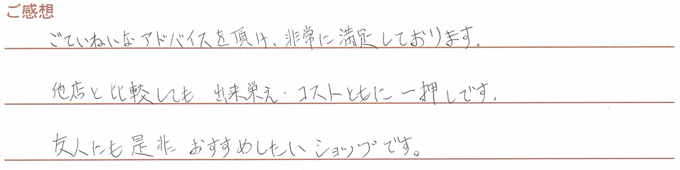 ご感想
ごていねいなアドバイスを頂け、非常に満足しております。
他店と比較しても 出来栄え・コストともに一押しです。
友人にも是非おすすめしたいショップです。